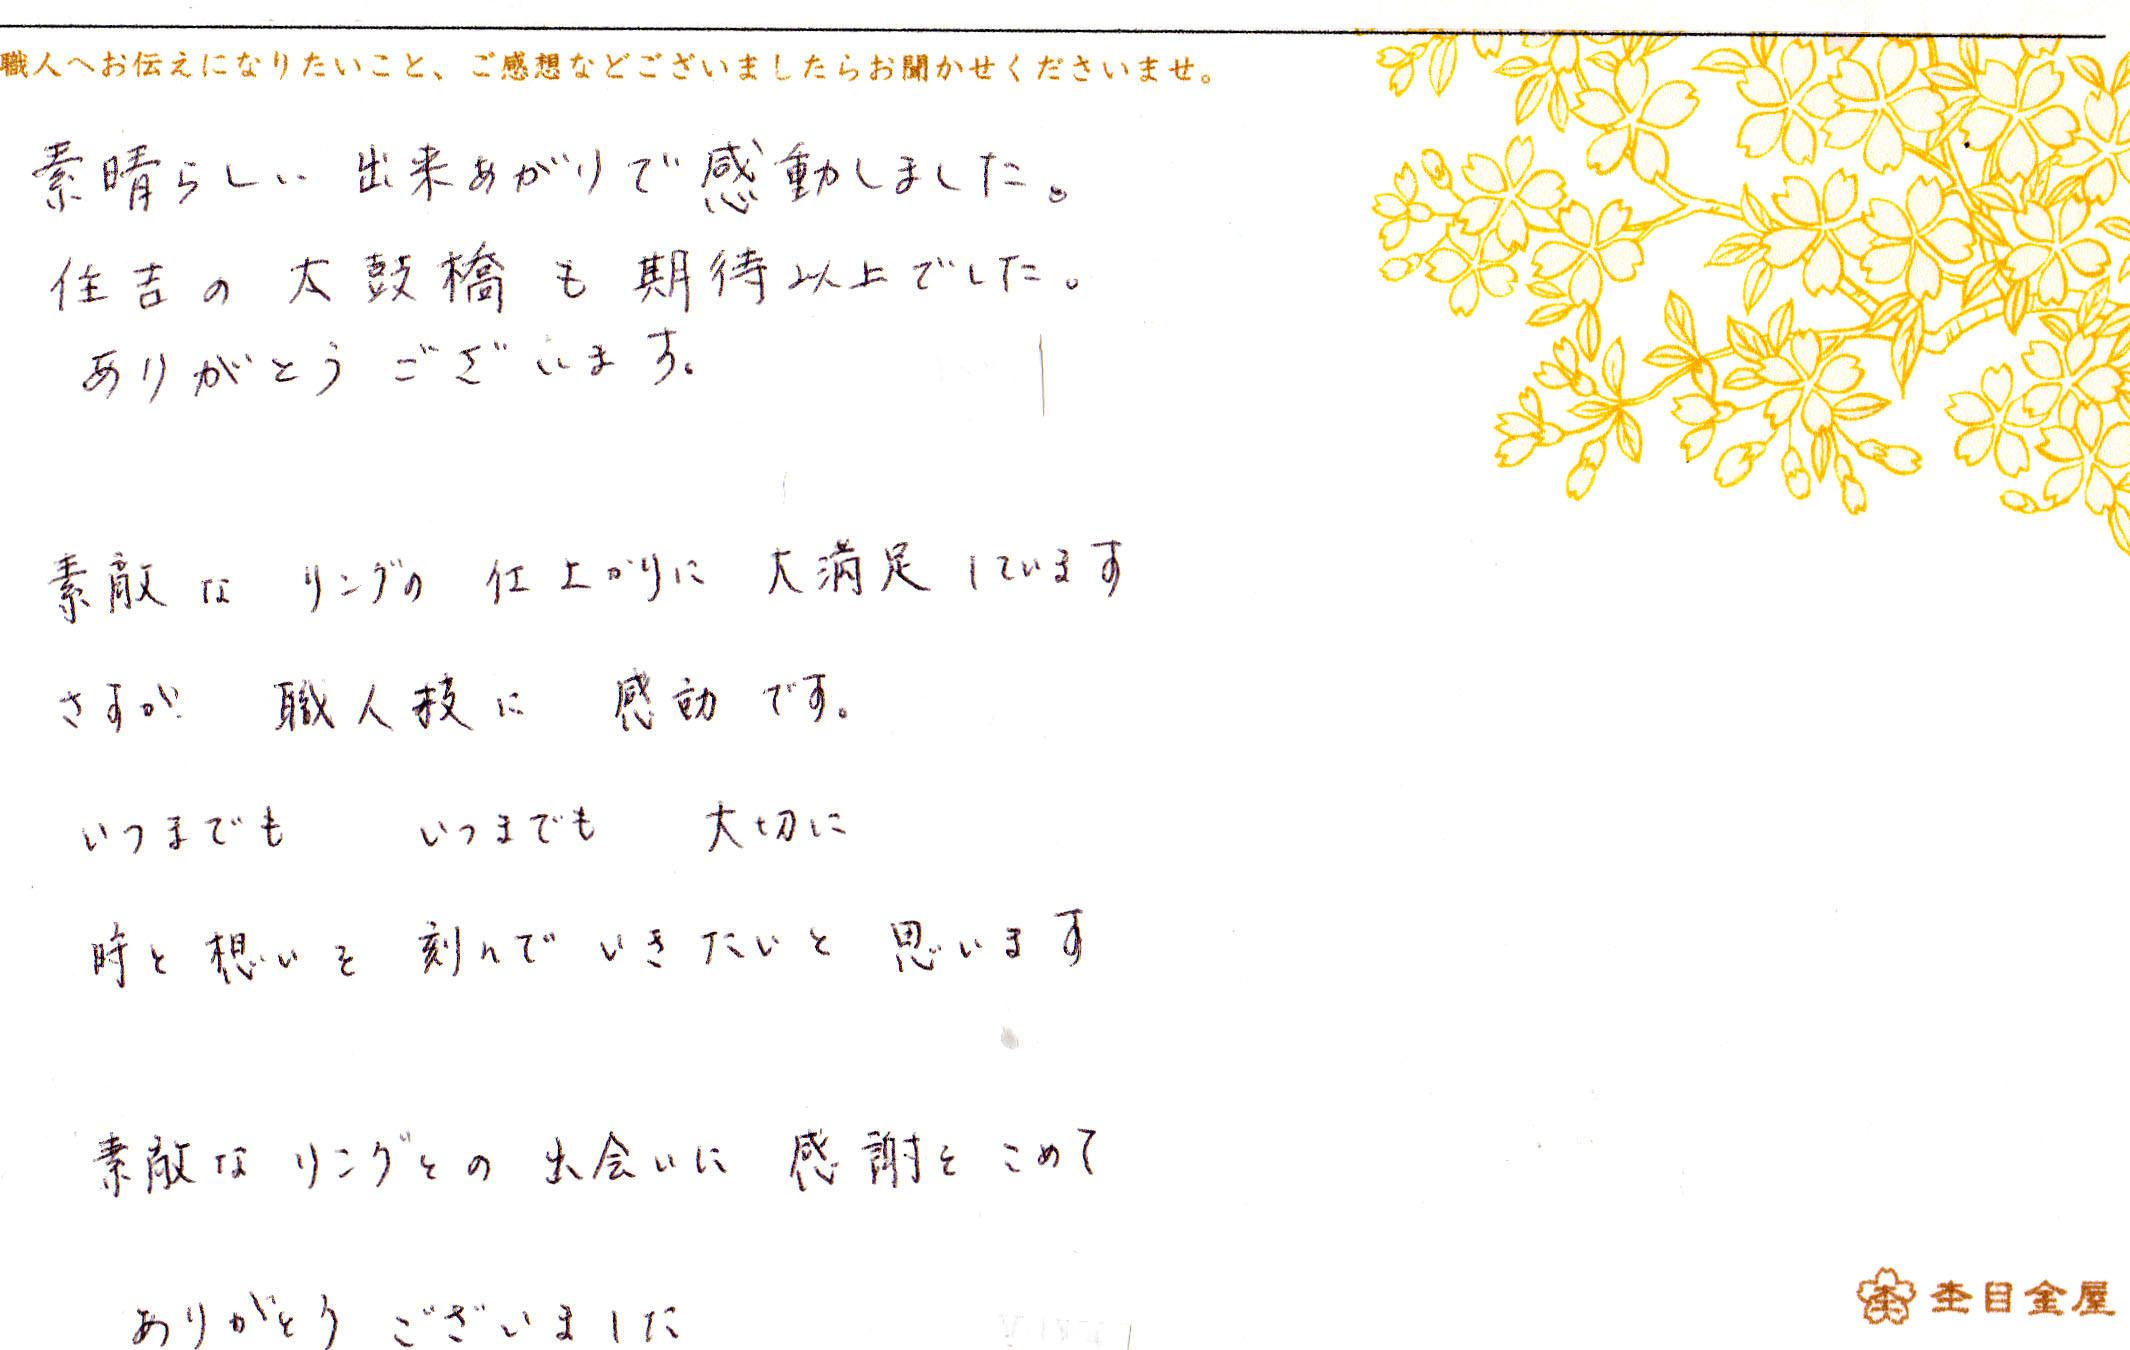 職人へお伝えになりたいこと、ご感想などございましたらお聞かせくださいませ。
素晴らしい 出来あがりで感動しました。
住吉の 太鼓橋も期待以上でした。
ありがとうございます。
素敵な リングの 仕上がりに 大満足しています
さすが 職人技に 感動です。
いつまでも いつまでも 大切に
時と想いを刻んでいきたいと思います
素敵なリングとの出会いに感謝をこめて
ありがとうございました
杢目金屋